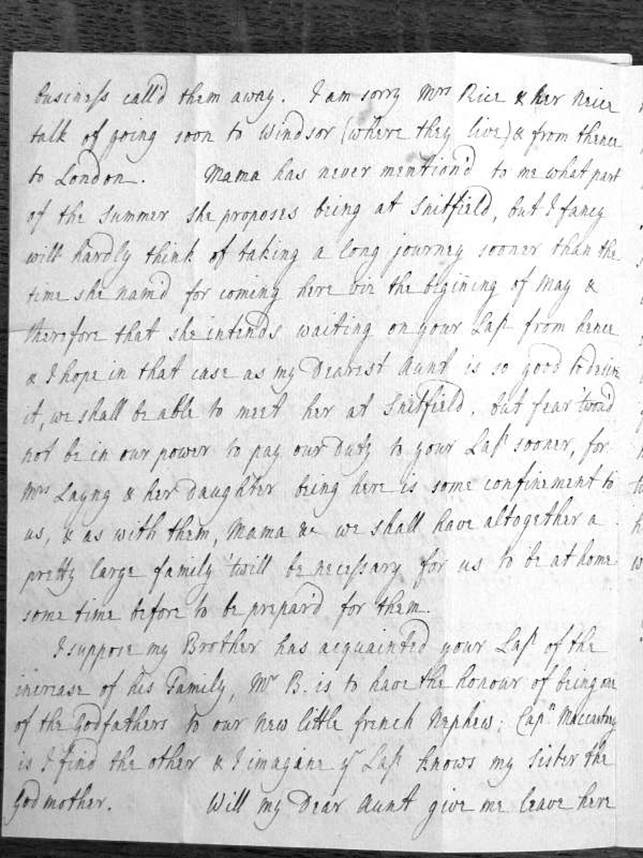 business call'd them away. I am sorry Mrs Rice & her Neice
talk of going soon to Windsor (where they live) & from thence
to London. Mama has never mention'd to me what part
of the summer she proposes being at Snitfield, but I fancy
will hardly think of taking a long journey sooner than the
time she nam'd for coming here viz the begining of May &
therefore that she intends waiting on your Lasp from hence
& I hope in that case as my Dearest Aunt is so good to desire
it, we shall be able to meet her at Snitfield, but fear 'twou'd
not be in our power to pay our Duty to your Lasp sooner, for
Mrs Layng & her daughter being here is some confinement to
us, & as with them, Mama &c we shall have altogether a
pretty large family 'twill be necessary for us to be at home
some time before to be prepar'd for them.
I suppose my Brother has acquainted your Lasp of the
increase of his Family, Mr B. is to have the honour of being one
of the Godfathers to our new little french Nephew; Capn Maccartny
is I find the other & I imagine yr Lasp knows my Sister the
Godmother. Will my Dear Aunt give me leave here